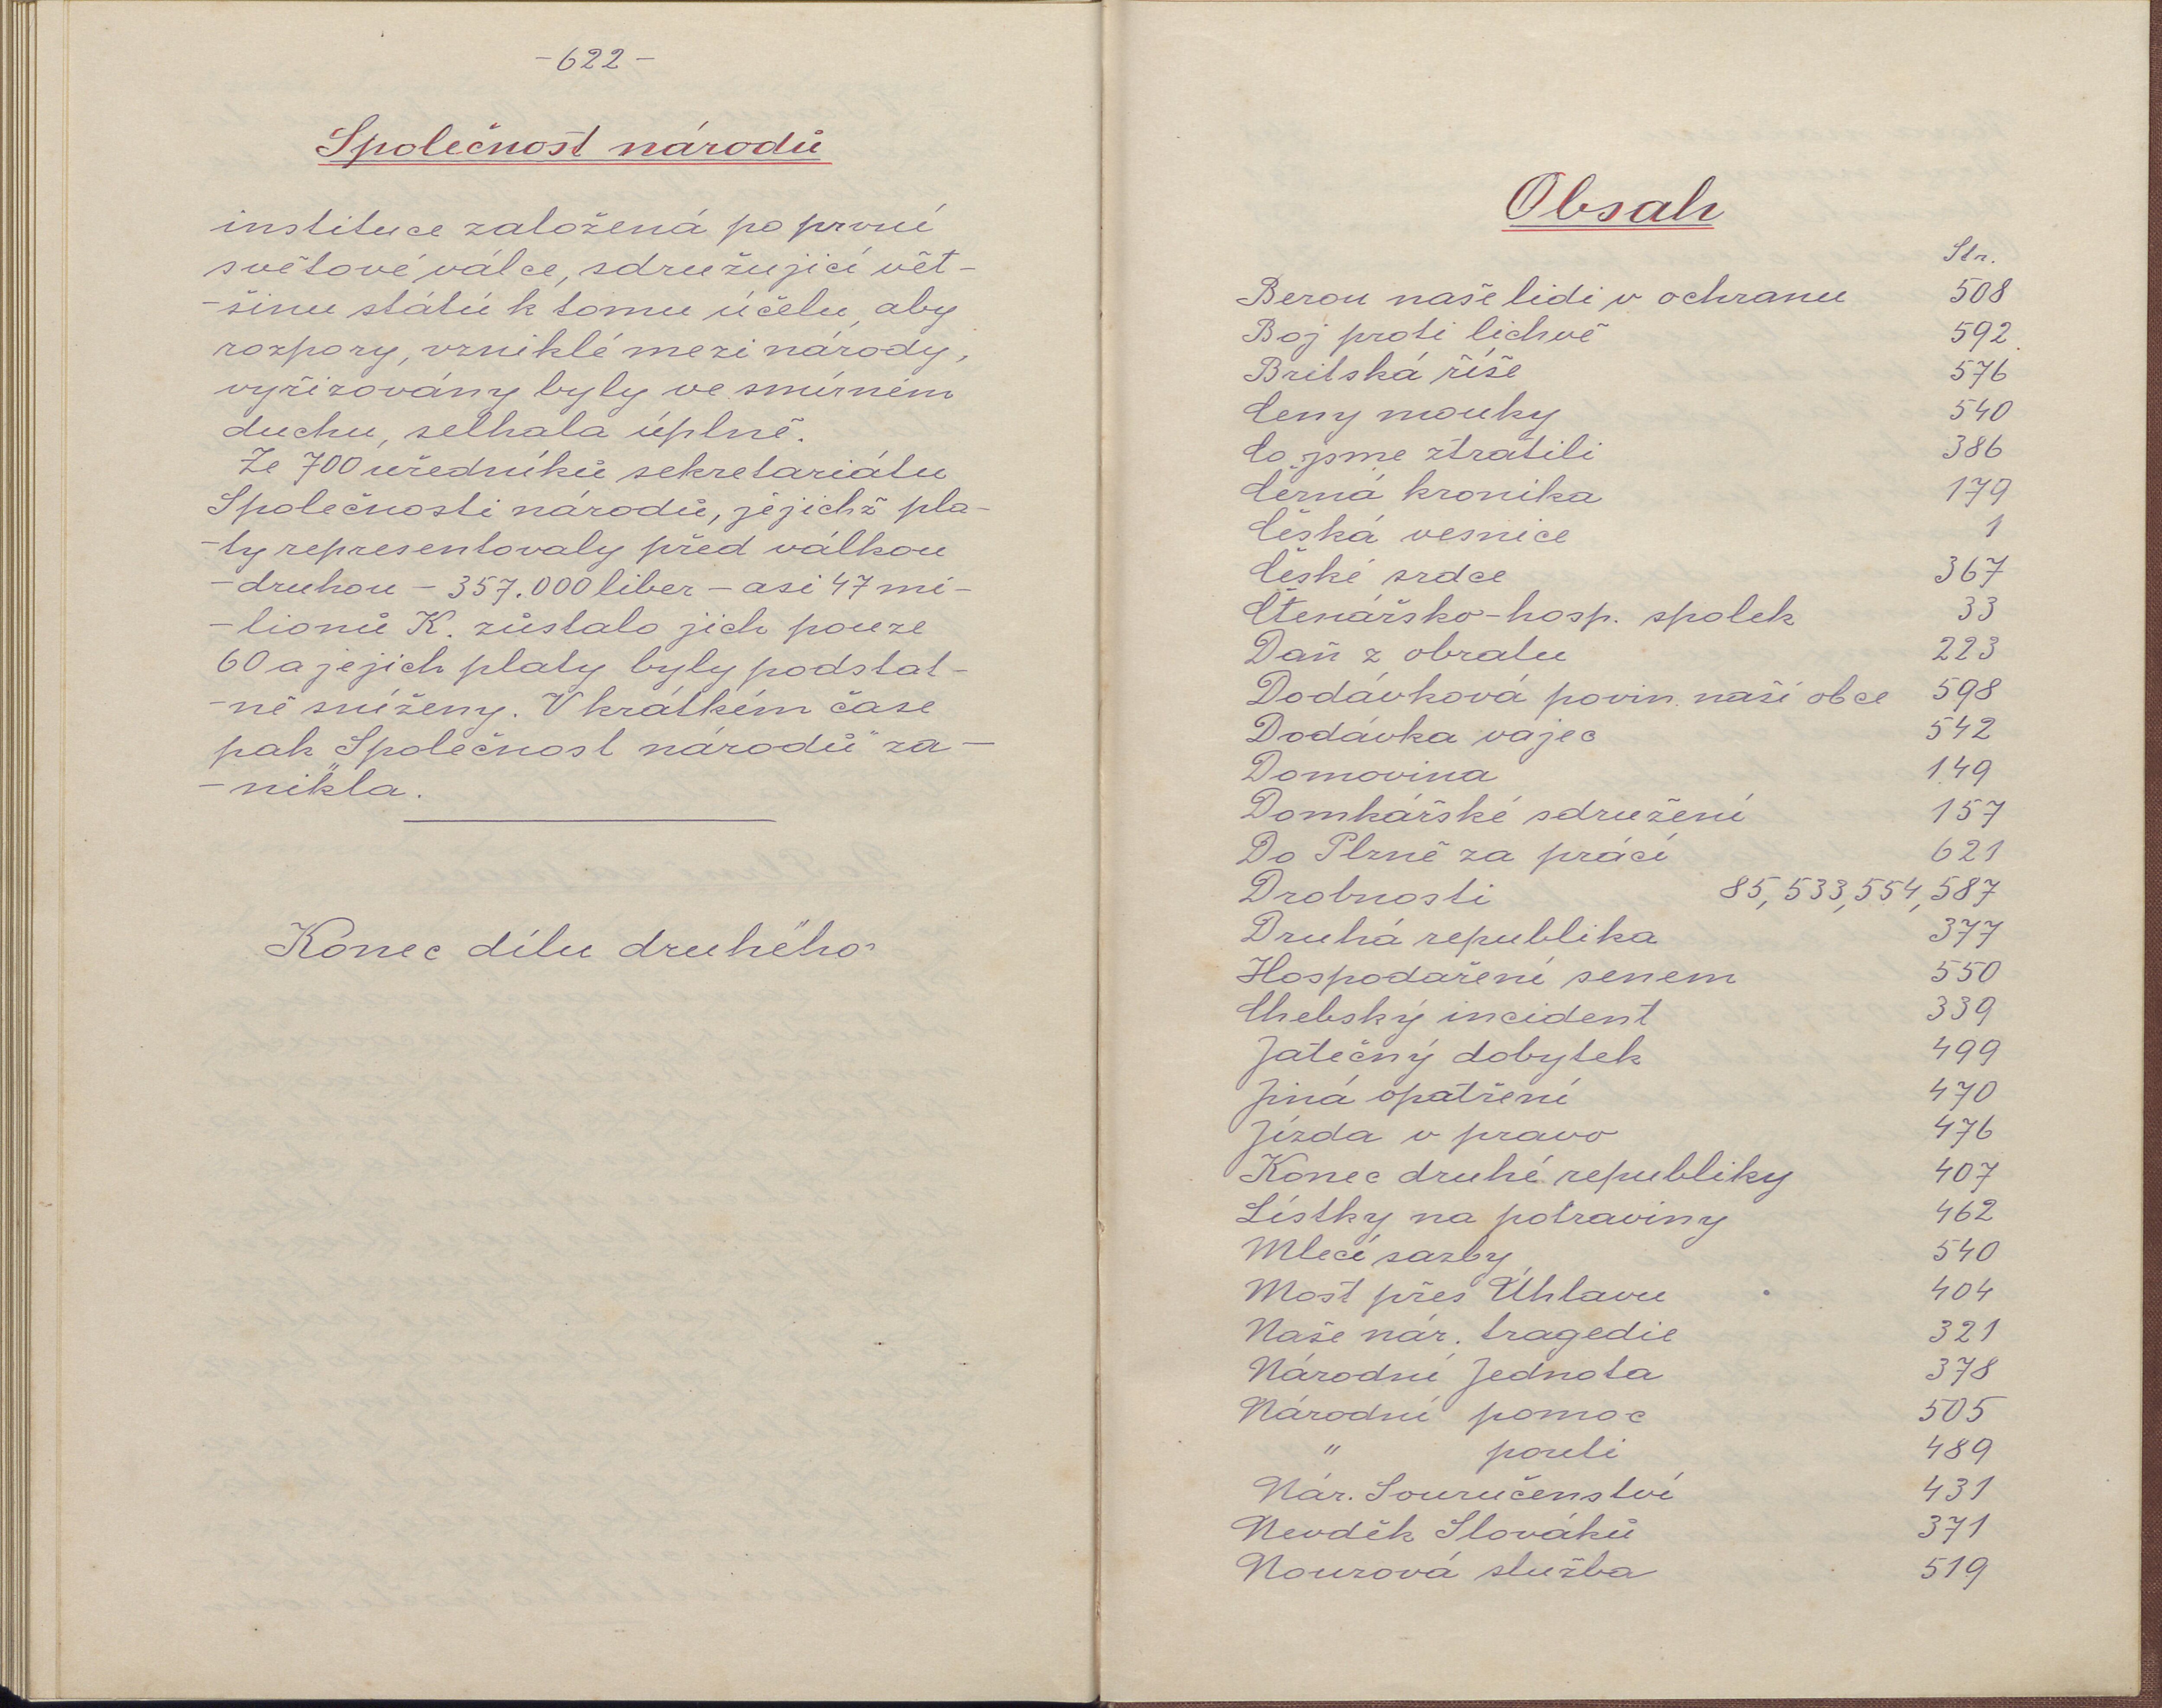 -622-
Společnost národů
instituce založená po první
světové válce, sdružující vět-
-šinu států k tomu účelu, aby
rozpory, vzniklé mezi národy,
vyřizovány byly ve smírném
duchu, selhala úplně.
Ze 700 úředníků sekretariátu
Společnosti národů, jejichž pla-
-ty representovaly před válkou
-druhou - 357.000 liber - asi 47 mi-
-lionů K. zůstalo jich pouze
60 a jejich platy byly podstat-
-ně sníženy. V krátkém čase
pak „Společnost národů" za-
-nikla.
Konec dílu druhého
Obsah
Str.
Berou naše lidi v ochranu 508
Boj proti lichvě 592
Britská říše 576
Ceny mouky 540
Co jsme ztratili 386
Černá kronika 179
Česká vesnice 1
České srdce 367
Čtenářsko-hosp. spolek 33
Daň z obratu 223
Dodávková povin. naší obce 598
Dodávka vajec 542
Domovina 149
Domkářské sdružení 157
Do Plzně za prácí 621
Drobnosti 85, 533, 554, 587
Druhá republika 377
Hospodaření senem 550
Chebský incident 339
Jatečný dobytek 499
Jiná opatření 470
Jízda v pravo 476
Konec druhé republiky 407
Lístky na potraviny 462
Mlecí sazby 540
Most přes Úhlavu 404
Naše nár. tragedie 321
Národní Jednota 378
Národní pomoc 505
" pouti 489
Nár. Souručenství 431
Nevděk Slováků 371
Nouzová služba 519